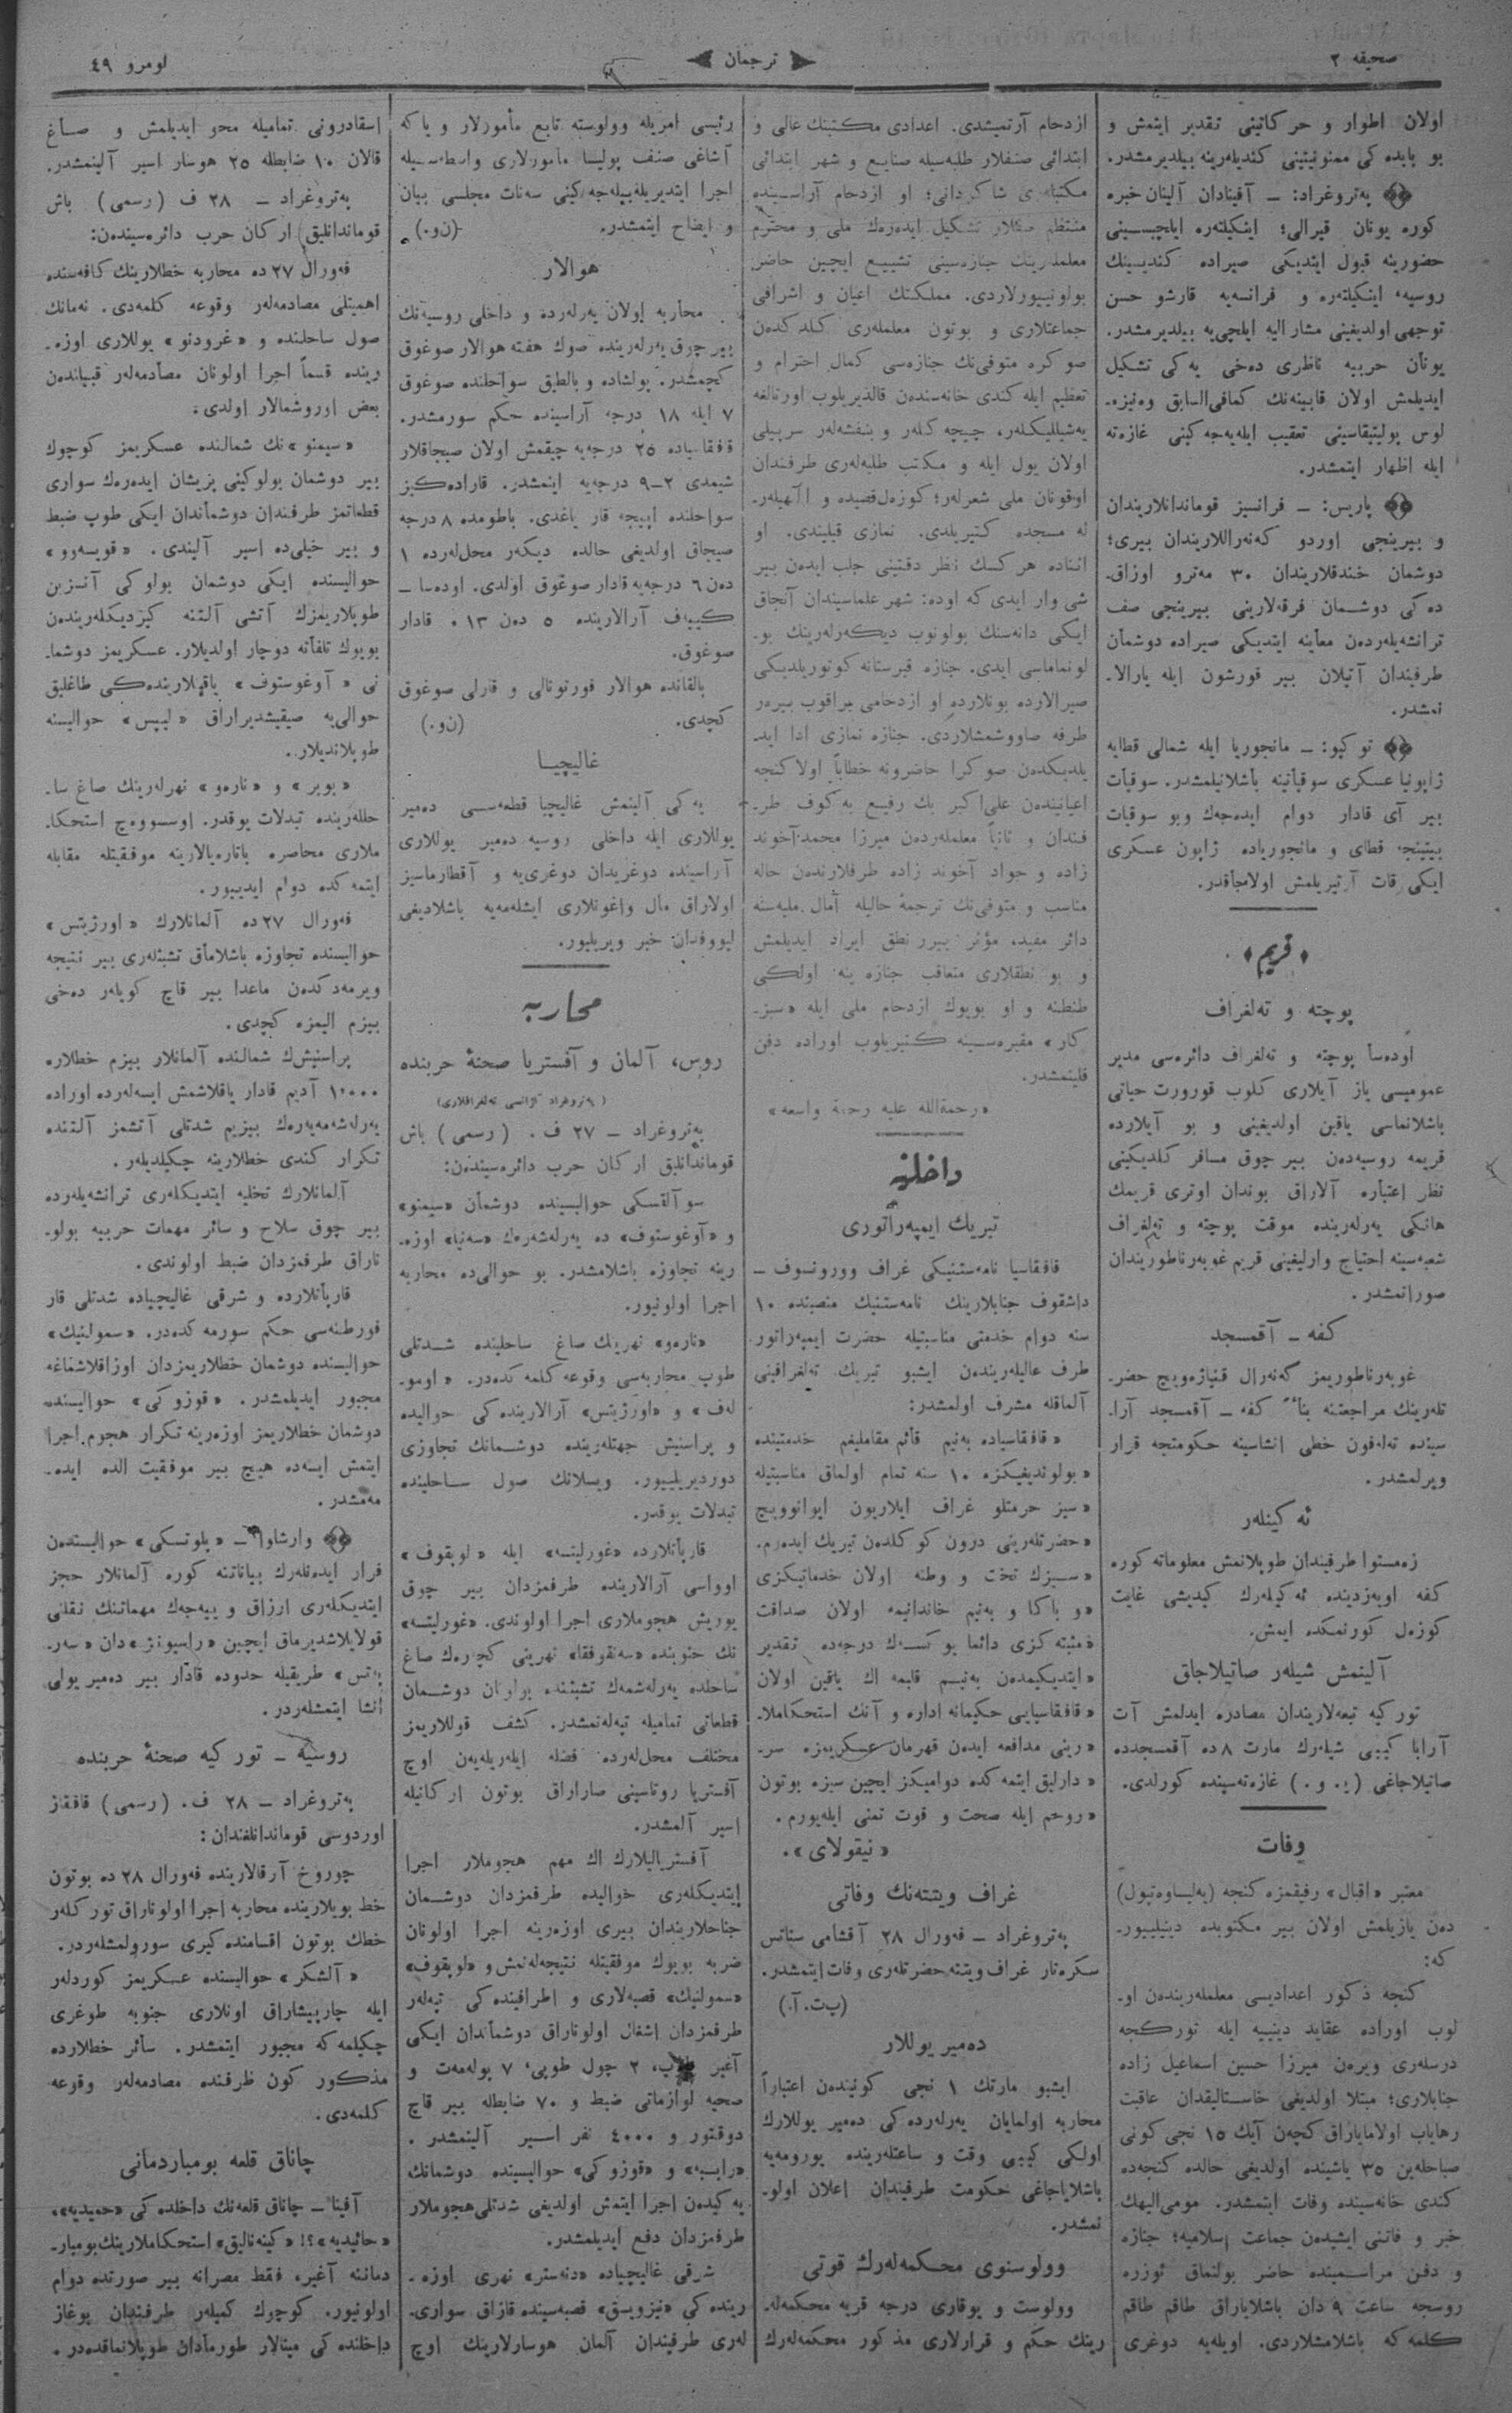 صحیفه ٢
ترجمان
لومرو ٤٩
اولان اطوار و حركاتینی تقدیر ایتمش و
بو بابده كی ممنونیتینی كندیلەرینه بیلدیرمشدر.
پەتروغراد: ــ آفینادان آلینان خبره
كوره یونان قیرالی؛ اینكیلتەره ایلچیسینی
حضورینه قبول ایتدیكی صیراده كندیسینك
روسیه، اینكیلتەره و فرانسەیه قارشو حسن
توجهی اولدیغینی مشار الیه ایلچی‌یه بیلدیرمشدر.
یونان حربیه ناظری دەخی یەكی تشكیل
ایدیلمش اولان قابینەنك كمافی‌السابق وەنیزه‌ـ
لوس پولیتیقاسینی تعقیب ایلەیەجەكینی غازەته
ایله اظهار ایتمشدر.
پاریس: ــ فرانسیز قوماندانلاریندان
و بیرینجی اوردو كەنەراللاریندان بیری؛
دوشمان خندقلاریندان ٣٠ مەترو اوزاق‌ـ
ده كی دوشمان فرقەلارینی بیرینجی صف
ترانشەیلەردەن معاینه ایتدیكی صیراده دوشمان
طرفیندان آتیلان بیر قورشون ایله یارالا‌ـ
نمشدر.
توكیو: ــ مانجوریا ایله شمالی قطایه
ژاپونیا عسكری سوقیاتینه باشلانیلمشدر. سوقیات
بیر آی قادار دوام ایدەجەك وبو سوقیات
بیتینجه قطای و مانجوریاده ژاپون عسكری
ایكی قات آرتیریلمش اولاجاقدر.
«قریم»
پوچته و تەلغراف
اودەسا پوچته و تەلغراف دائرەسی مدیر
عمومیسی یاز آیلاری كلوب قورورت حیاتی
باشلانماسی یاقین اولدیغینی و بو آیلارده
قریمه روسیەدەن بیر چوق مسافر كلدیكینی
نظر اعتباره آلاراق بوندان اوتری قریمك
هانكی یەرلەرینده موقت پوچته و تەلغراف
شعبەسینه احتیاج وارلیغینی قریم غوبەرناطوریندان
صورانمشدر.
كفه ــ آقمسجد
غوبەرناطوریمز كەنەرال قنیاژەویچ حضر‌ـ
تلەرینك مراجعتنه بناءً كفه ــ آقمسجد آرا‌ـ
سینده تەلەفون خطی انشاسینه حكومتجه قرار
ویرلمشدر.
ئەكینلەر
زەمستوا طرفیندان طوپلانمش معلوماته كوره
كفه اویەزدینده ئەكینلەرك كیدیشی غایت
كوزەل كورنمكده ایمش.
آلینمش شیلەر صاتیلاجاق
توركیه تبعەلاریندان مصادره ایدلمش آت
آرابا كیبی شیلەرك مارت ٨ ده آقمسجدده
صاتیلاجاغی (ی. و.) غازەتەسینده كورلدی.
وفات
معتبر «اقبال» رفیقمزه كنجه (یەلیساوەتپول)
دەن یازیلمش اولان بیر مكتوبده دینیلییور‌ـ
كه:
كنجه ذكور اعدادیسی معلملەریندەن او‌ـ
لوب اوراده عقاید دینییه ایله توركجه
درسلەری ویرەن میرزا حسین اسماعیل زاده
جنابلاری؛ مبتلا اولدیغی خاستالیقدان عاقبت
رهایاب اولامایاراق كچەن آیك ١٥ نجی كونی
صباحلەین ٣٥ یاشینده اولدیغی حالده كنجەده
كندی خانەسینده وفات ایتمشدر. مومی‌الیهك
خبر و فاتنی ایشیدەن جماعت اسلامیه؛ جنازه
و دفن مراسمینده حاضر بولنماق ئوزره
روسجه ساعت ٩ دان باشلایاراق طاقم طاقم
كلمەكه باشلامشلاردی. اویلەیه دوغری
ازدحام آرتمیشدی. اعدادی مكتبنك عالی و
ابتدائی صنفلار طلبەسیله صنایع و شهر ابتدائی
مكتبلەری شاكردانی؛ او ازدحام آراسینده
منتظم صفلار تشكیل ایدەرەك ملی و محترم
معلملەرینك جنازەسینی تشییع ایچین حاضر
بولونییورلاردی. مملكتك اعیان و اشرافی
جماعتلاری و بوتون معلملەری كلدكدەن
صوكره متوفی‌نك جنازەسی كمال احترام و
تعظیم ایله كندی خانەسندەن قالدیریلوب اورتالغه
یەشیللیكلەر، چیچەكلەر و بنفشەلەر سرپیلی
اولان یول ایله و مكتب طلبەلەری طرفندان
اوقونان ملی شعرلەر؛ كوزەل قصیده و آلهیلەر‌ـ
له مسجده كتیریلدی. نمازی قیلیندی. او
اثناده هركسك نظر دقتینی جلب ایدەن بیر
شی وار ایدی كه اوده: شهر علماسیندان آنجاق
ایكی دانەسنك بولونوب دیكەرلەرینك بو‌ـ
لونماماسی ایدی. جنازه قبرستانه كوتوریلدیكی
صیرالارده بونلارده او ازدحامی براقوب بیرەر
طرفه صاووشمشلاردی. جنازه نمازی ادا اید‌ـ
یلدیكدەن صوكرا حاضرونه خطاباً اولا كنجه
اعیانیندەن علی‌اكبر بك رفیع بەكوف طر‌ـ
فندان و ثانیاً معلملەردەن میرزا محمد آخوند
زاده و جواد آخوند زاده طرفلارندەن حاله
مناسب و متوفی‌نك ترجمهٔ حالیله آمال ملیەسنه
دائر مفید، مؤثر بیرر نطق ایراد ایدیلمش
و بو نطقلاری متعاقب جنازه ینه اولكی
طنطنه و او بویوك ازدحام ملی ایله «سبز‌ـ
كار» مقبرەسینه كتیریلوب اوراده دفن
قلینمشدر.
«رحمةالله علیه رحمة واسعه»
داخلیه
تبریك ایمپەراتوری
قافقاسیا نامەستنیكی غراف وورونسوف ــ
داشقوف جنابلارینك نامەستنیك منصبنده ١٠
سنه دوام خدمتی مناسبتیله حضرت ایمپەراتور
طرف عالیلەریندەن ایشبو تبریك تەلغرافینی
آلماقله مشرف اولمشدر:
«قافقاسیاده بەنیم قائم مقاملیغم خدمتینده
«بولوندیغیكزه ١٠ سنه تمام اولماق مناسبتیله
«سیز حرمتلو غراف ایلاریون ایوانوویچ
«حضرتلەرینی درون كوكلدەن تبریك ایدەرم.
«سیزك تخت و وطنه اولان خدماتیكزی
«و باكا و بەنیم خاندانیمه اولان صداقت
«مثبتەكزی دائما یوكسك درجەده تقدیر
«ایتدیكیمدەن بەنیم قلبمه اك یاقین اولان
«قافقاسیایی حكیمانه اداره و آنك استحكاملا‌ـ
«رینی مدافعه ایدەن قهرمان عسكریمزه سر‌ـ
«دارلیق ایتمەكده دوامیكز ایچین سیزه بوتون
«روحم ایله صحت و قوت تمنی ایلەیورم.
«نیقولای».
غراف ویتتەنك وفاتی
پەتروغراد ــ فەورال ٢٨ آقشامی ستاتس
سكرەتار غراف ویتته حضرتلەری وفات ایتمشدر.
(پ.ت.آ.)
دەمیر یوللار
ایشبو مارتك ١ نجی كونیندەن اعتباراً
محاربه اولمایان یەرلەردەكی دەمیر یوللارك
اولكی كیبی وقت و ساعتلەرینده یورومەیه
باشلایاجاغی حكومت طرفیندان اعلان اولو‌ـ
نمشدر.
وولوسنوی محكمەلەرك قوتی
وولوست و یوقاری درجه قریه محكمەلە‌ـ
رینك حكم و قرارلاری مذكور محكمەلەرك
رئیسی امریله وولوسته تابع مأمورلار و یاكه
آشاغی صنف پولیسا مأمورلاری واسطەسیله
اجرا ایتدیریلەبیلەجەكینی سەنات مجلسی بیان
و ایضاح ایتمشدر. (ن.و.)
هوالار
محاربه اولان یەرلەرده و داخلی روسیەنك
بیر چوق یەرلەرینده صوك هفته هوالار صوغوق
كچمشدر. پولشاده و بالطیق سواحلنده صوغوق
٧ ایله ١٨ درجه آراسینده حكم سورمشدر.
قافقاسیاده ٢٥ درجەیه چیقمش اولان صیجاقلار
شیمدی ٢ــ٩ درجەیه اینمشدر. قارادەكیز
سواحلنده اپیجه قار یاغدی. باطومده ٨ درجه
صیجاق اولدیغی حالده دیكەر محللەرده ١
دەن ٦ درجەیه قادار صوغوق اولدی. اودەسا ــ
كییەف آرالارینده ٥ دەن ١٣ ه قادار
صوغوق.
بالقانده هوالار فورتونالی و قارلی صوغوق
كچدی. (ن.و.)
غالیچیا
یەكی آلینمش غالیچیا قطعەسی دەمیر
یوللاری ایله داخلی روسیه دەمیر یوللاری
آراسینده دوغریدان دوغری‌یه و آقطارماسیز
اولاراق مال واغونلاری ایشلەمەیه باشلادیغی
لیووفدان خبر ویریلیور.
محاربه
روس، آلمان و آفستریا صحنهٔ حربنده
(پەتروغراد آژانسی تەلغرافلاری)
پەتروغراد ــ ٢٧ ف. (رسمی) باش
قوماندانلیق اركان حرب دائرەسیندەن:
سوآلقسكی حوالیسینده دوشمان «سیمنو»
و «آوغوستوف» ده یەرلەشەرەك «سەنیا» اوزه‌ـ
رینه تجاوزه باشلامشدر. بو حوالی‌ده محاربه
اجرا اولونیور.
«نارەو» نهرینك صاغ ساحلینده شدتلی
طوپ محاربەسی وقوعه كلمەكدەدر. «اومو‌ـ
لەف» و «اورژیتس» آرالاریندەكی حوالیده
و پراسنیش جهتلەرینده دوشمانك تجاوزی
دوردیریلییور. ویسلانك صول ساحلینده
تبدلات یوقدر.
قارپاتلارده «غورلیتسه» ایله «لوپقوف»
اوواسی آرالارینده طرفمزدان بیر چوق
یوریش هجوملاری اجرا اولوندی. «غورلیتسه»
نك جنوبنده «سەنقوفقا» نهرینی كچەرەك صاغ
ساحلده یەرلەشمەك تشبثنده بولونان دوشمان
قطعاتی تمامیله تپەلەنمشدر. كشف قوللاریمز
مختلف محللەرده فضله ایلەریلەیەن اوچ
آفستریا روتاسینی صاراراق بوتون اركانیله
اسیر آلمشدر.
آفستریالیلارك اك مهم هجوملار اجرا
ایتدیكلەری حوالیده طرفمزدان دوشمان
جناحلاریندان بیری اوزەرینه اجرا اولونان
ضربه بویوك موفقیتله نتیجەلەنمش و «لوپقوف»
«سمولنیك» قصبەلاری و اطرافیندەكی تپەلەر
طرفمزدان اشغال اولوناراق دوشماندان ایكی
آغیر طوپ، ٢ چول طوپی، ٧ پولەمەت و
صحیه لوازماتی ضبط و ٧٠ ضابطله بیر قاچ
دوقتور و ٤٠٠٠ نفر اسیر آلینمشدر.
«رابیه» و «قوزوكی» حوالیسینده دوشمانك
یەكیدەن اجرا ایتمش اولدیغی شدتلی هجوملار
طرفمزدان دفع ایدیلمشدر.
شرقی غالیچیاده «دنەستر» نهری اوزه‌ـ
ریندەكی «نیزویسق» قصبەسینده قازاق سواری‌ـ
لەری طرفیندان آلمان هوسارلارینك اوچ
اسقادرونی تمامیله محو ایدیلمش و صاغ
قالان ١٠ ضابطله ٢٥ هوسار اسیر آلینمشدر.
پەتروغراد ــ ٢٨ ف (رسمی) باش
قوماندانلیق اركان حرب دائرەسیندەن:
فەورال ٢٧ ده محاربه خطلارینك كافەسنده
اهمیتلی مصادمەلەر وقوعه كلمەدی. نەمانك
صول ساحلنده و «غرودنو» یوللاری اوزه‌ـ
رینده قسماً اجرا اولونان مصادمەلەر قبیلندەن
بعض اوروشمالار اولدی:
«سیمنو»نك شمالنده عسكریمز كوچوك
بیر دوشمان بولوكینی پریشان ایدەرەك سواری
قطعاتمز طرفندان دوشماندان ایكی طوپ ضبط
و بیر خیلی‌ده اسیر آلیندی. «قوپسەوو»
حوالیسنده ایكی دوشمان بولوكی آنسزین
طوپلاریمزك آتشی آلتنه كیردیكلەریندەن
بویوك تلفاته دوچار اولدیلار. عسكریمز دوشما‌ـ
نی «آوغوستوف» یاقینلاریندەكی طاغلیق
حوالی‌یه صیقیشدیراراق «لیپس» حوالیسنه
طوپلاندیلار.
«بوبر» و «نارەو» نهرلەرینك صاغ سا‌ـ
حللەرینده تبدلات یوقدر. اوسسووەچ استحكا‌ـ
ملاری محاصره باتارەیالارینه موفقیتله مقابله
ایتمەكده دوام ایدییور.
فەورال ٢٧ ده آلمانلارك «اورژیتس»
حوالیسنده تجاوزه باشلاماق تشبثلەری بیر نتیجه
ویرمەدكدەن ماعدا بیر قاچ كویلەر دەخی
بیزم الیمزه كچدی.
پراسنیش‌ك شمالنده آلمانلار بیزم خطلاره
١٠٠٠٠ آدیم قادار یاقلاشمش ایسەلەرده اوراده
یەرلەشەمەیەرەك بیزیم شدتلی آتشمز آلتنده
تكرار كندی خطلارینه چكیلدیلەر.
آلمانلارك تخلیه ایتدیكلەری ترانشەیلەرده
بیر چوق سلاح و سائر مهمات حربیه بولو‌ـ
ناراق طرفمزدان ضبط اولوندی.
قارپاتلارده و شرقی غالیچیاده شدتلی قار
فورطنەسی حكم سورمەكدەدر. «سمولنیك»
حوالیسنده دوشمان خطلاریمزدان اوزاقلاشماغه
مجبور ایدیلمشدر. «قوزوكی» حوالیسنده
دوشمان خطلاریمز اوزەرینه تكرار هجوم اجرا
ایتمش ایسەده هیچ بیر موفقیت الده ایده‌ـ
مەمشدر.
وارشاوا ــ «پلوتسكی» حوالیسندەن
فرار ایدەنلەرك بیاناتنه كوره آلمانلار حجز
ایتدیكلەری ارزاق و یییەجەك مهماتنك نقلنی
قولایلاشدیرماق ایچین «راسیونژ»دان «سەر‌ـ
پتس» طریقیله حدوده قادار بیر دەمیر یولی
انشا ایتمشلەردر.
روسیه ــ توركیه صحنهٔ حربنده
پەتروغراد ــ ٢٨ ف. (رسمی) قافقاز
اوردوسی قوماندانلغندان:
چوروخ آرقالارینده فەورال ٢٨ ده بوتون
خط بویلارینده محاربه اجرا اولوناراق توركلەر
خطك بوتون اقسامنده كیری سورولمشلەردر.
«آلشكر» حوالیسنده عسكریمز كوردلەر
ایله چارپیشاراق اونلاری جنوبه طوغری
چكیلمەكه مجبور ایتمشدر. سائر خطلارده
مذكور كون ظرفنده مصادمەلەر وقوعه
كلمەدی.
چاناق قلعه بومباردمانی
آفینا ــ چاناق قلعەنك داخلدەكی «حمیدیه»،
«حائیدیه»؟! «كینەنالیق» استحكاملارینك بومبار‌ـ
دماننه آغیر، فقط مصرانه بیر صورتده دوام
اولونیور. كوچوك كمیلەر طرفندان بوغاز
داخلندەكی مینالار طورمادان طوپلانماقدەدر.